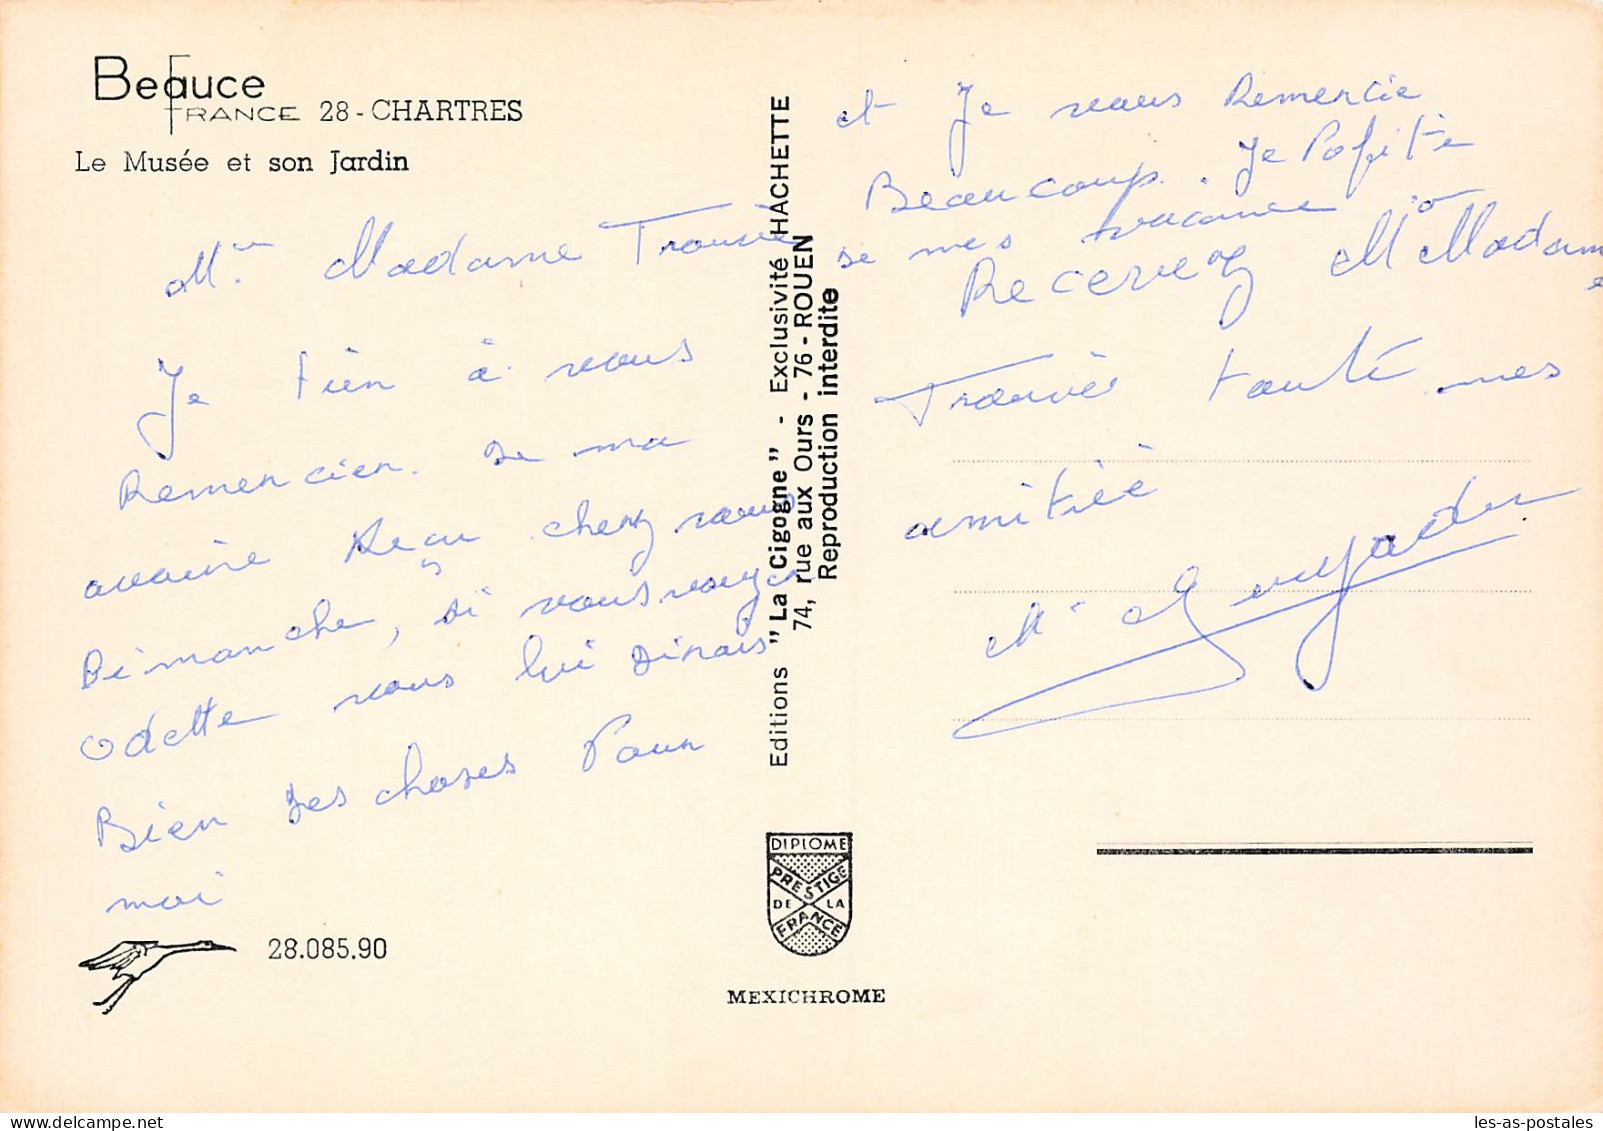 Beauce
FRANCE 28 - CHARTRES
Le Musée et son Jardin
Mr Madame Trouvè
Je tien à vous
Remercier. de ma
avoire Reçu chez vous
Dimanche, si vous voyez
Odette vous lui dirais
Bien des choses Pour
moi
28.085.90
Editions "La Cigogne" - Exclusivité HACHETTE
74, rue aux Ours - 76 - ROUEN
Reproduction interdite
DIPLOME
PRESTIGE
DE LA
FRANCE
MEXICHROME
et Je vous Remercie
Beaucoup. Je Pofite
de mes vacance
Recevez Mr Madame
Trouvè toute mes
amitiée
Mr
les-as-postales